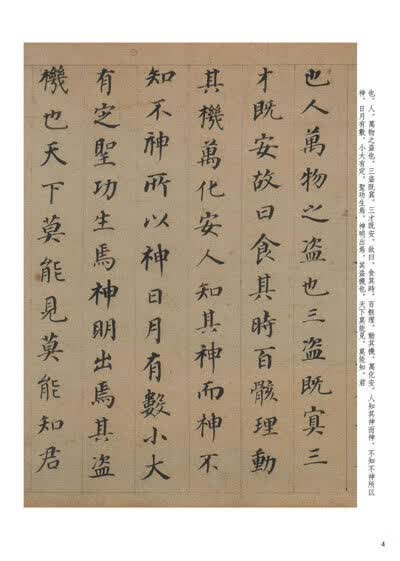 也、人、萬物之盜也、三盜既宜、三才既安、故曰、食其時、百骸理、動其機、萬化安、人知其神而神、不知不神所以
神、日月有數、小大有定、聖功生焉、神明出焉、其盜機也、天下莫能見、莫能知、君
也人萬物之盜也三盜既宜三
才既安故曰食其時百骸理動
其機萬化安人知其神而神不
知不神所以神日月有數小大
有定聖功生焉神明出焉其盜
機也天下莫能見莫能知君
4